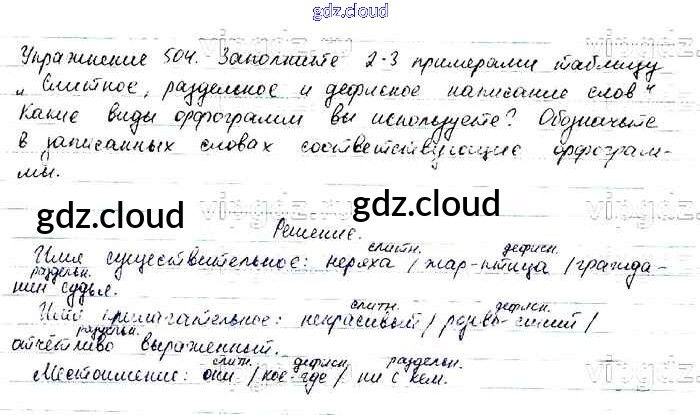 gdz.cloud
Упражнение 504. Заполните 2-3 примерами таблицу
„Слитное, раздельное и дефисное написание слов"
Какие виды орфограмм вы используете? Обозначьте
в записанных словах соответствующие орфограм-
мы.
gdz.cloud gdz.cloud
Решение.
слитн. дефисн.
Имя существительное: неряха / жар-птица / гражда-
раздельн.
нин судья.
слитн. дефисн.
Имя прилагательное: некрасивый / розово-синий /
раздельн.
отчётливо выраженный.
слитн. дефисн. раздельн.
Местоимение: они / кое-где / ни с кем.